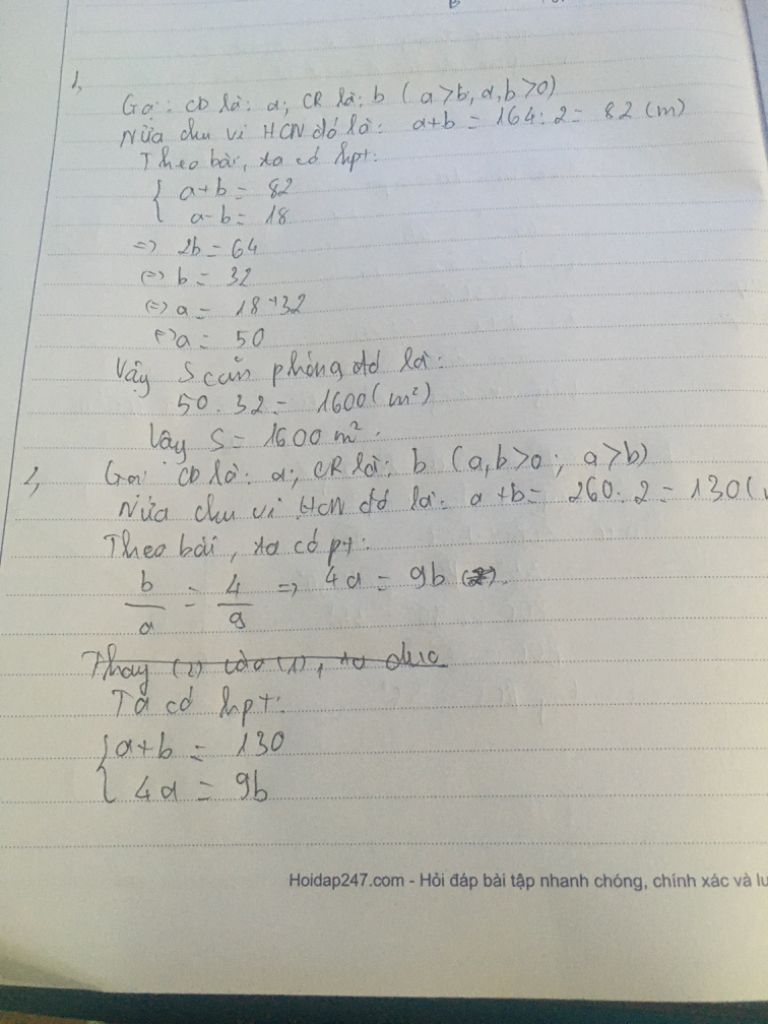 1,
Gọi: CD là: a; CR là: b ( a>b, a,b>0)
Nửa chu vi HCN đó là: a+b = 164:2= 82 (m)
Theo bài, ta có hpt:
{ a+b = 82
a-b = 18
=> 2b = 64
(=) b = 32
(=) a = 18+32
(=) a = 50
Vậy S căn phòng đó là:
50.32= 1600(m²)
Vậy S= 1600 m².
2, Gọi CD là: a; CR là: b (a,b>0; a>b)
Nửa chu vi HCN đó là: a+b= 260:2=130(
Theo bài, ta có pt:
b/a = 4/9 => 4a = 9b (2).
Thay (2) vào (1), ta được
Ta có hpt:
{ a+b = 130
4a = 9b
Hoidap247.com - Hỏi đáp bài tập nhanh chóng, chính xác và